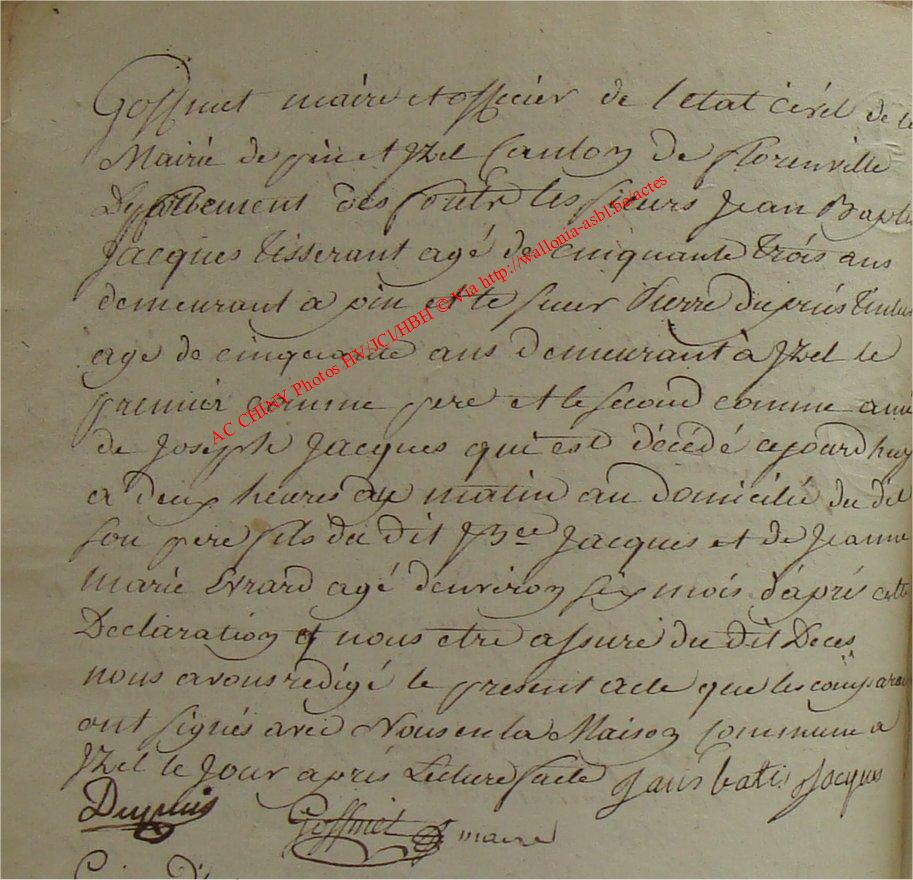 Goffinet maire et officier de l'etat civil de la
Mairie de pin et Izel Canton de florenville
Departement des forêts les sieurs Jean Bapte
Jacques tisserant agé de cinquante trois ans
demeurant a pin et le sieur Pierre dupuis
age de cinquante ans demeurant à Izel le
premier comme pere et le second comme ami
de Joseph Jacques qui est décédé cejourd'huy
a deux heures du matin au domicilie du dit
son pere fils du dit JBte Jacques et de Jeanne
Marie Evrard agé denviron six mois d'après cette
Declaration et nous etre assuré du dit Deces
nous avons redigé le present acte que les comparans
ont signés avec Nous en la Maison Commune a
Izel le Jour après Lecture faite Jans batis Jacques
Dupuis Goffinet maire
AC CHINY Photos HV/JCl/HBH © Via http://wallonia-asbl.be/actes